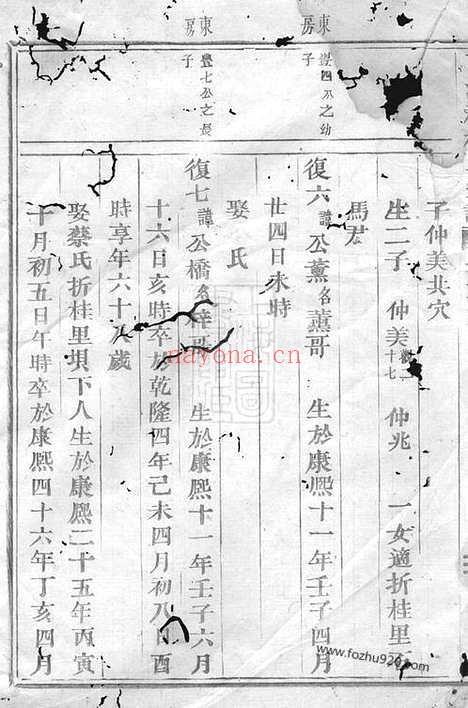 子仲美共穴
生二子 仲美 十七 仲兆 一女適折桂里
馬君
東房
豊四公之幼子
復六諱公薰名薰哥 生於康熙十一年壬子四月
廿四日未時
娶 氏
東房
豊七公之長子
復七諱公橋名梓哥 生於康熙十一年壬子六月
十六日亥時卒於乾隆四年己未四月初八日酉
時享年六十八歲
娶蔡氏折桂里垻下人生於康熙二十五年丙寅
十月初五日午時卒於康熙四十六年丁亥四月
nayona.cn
www.fozhu920.com